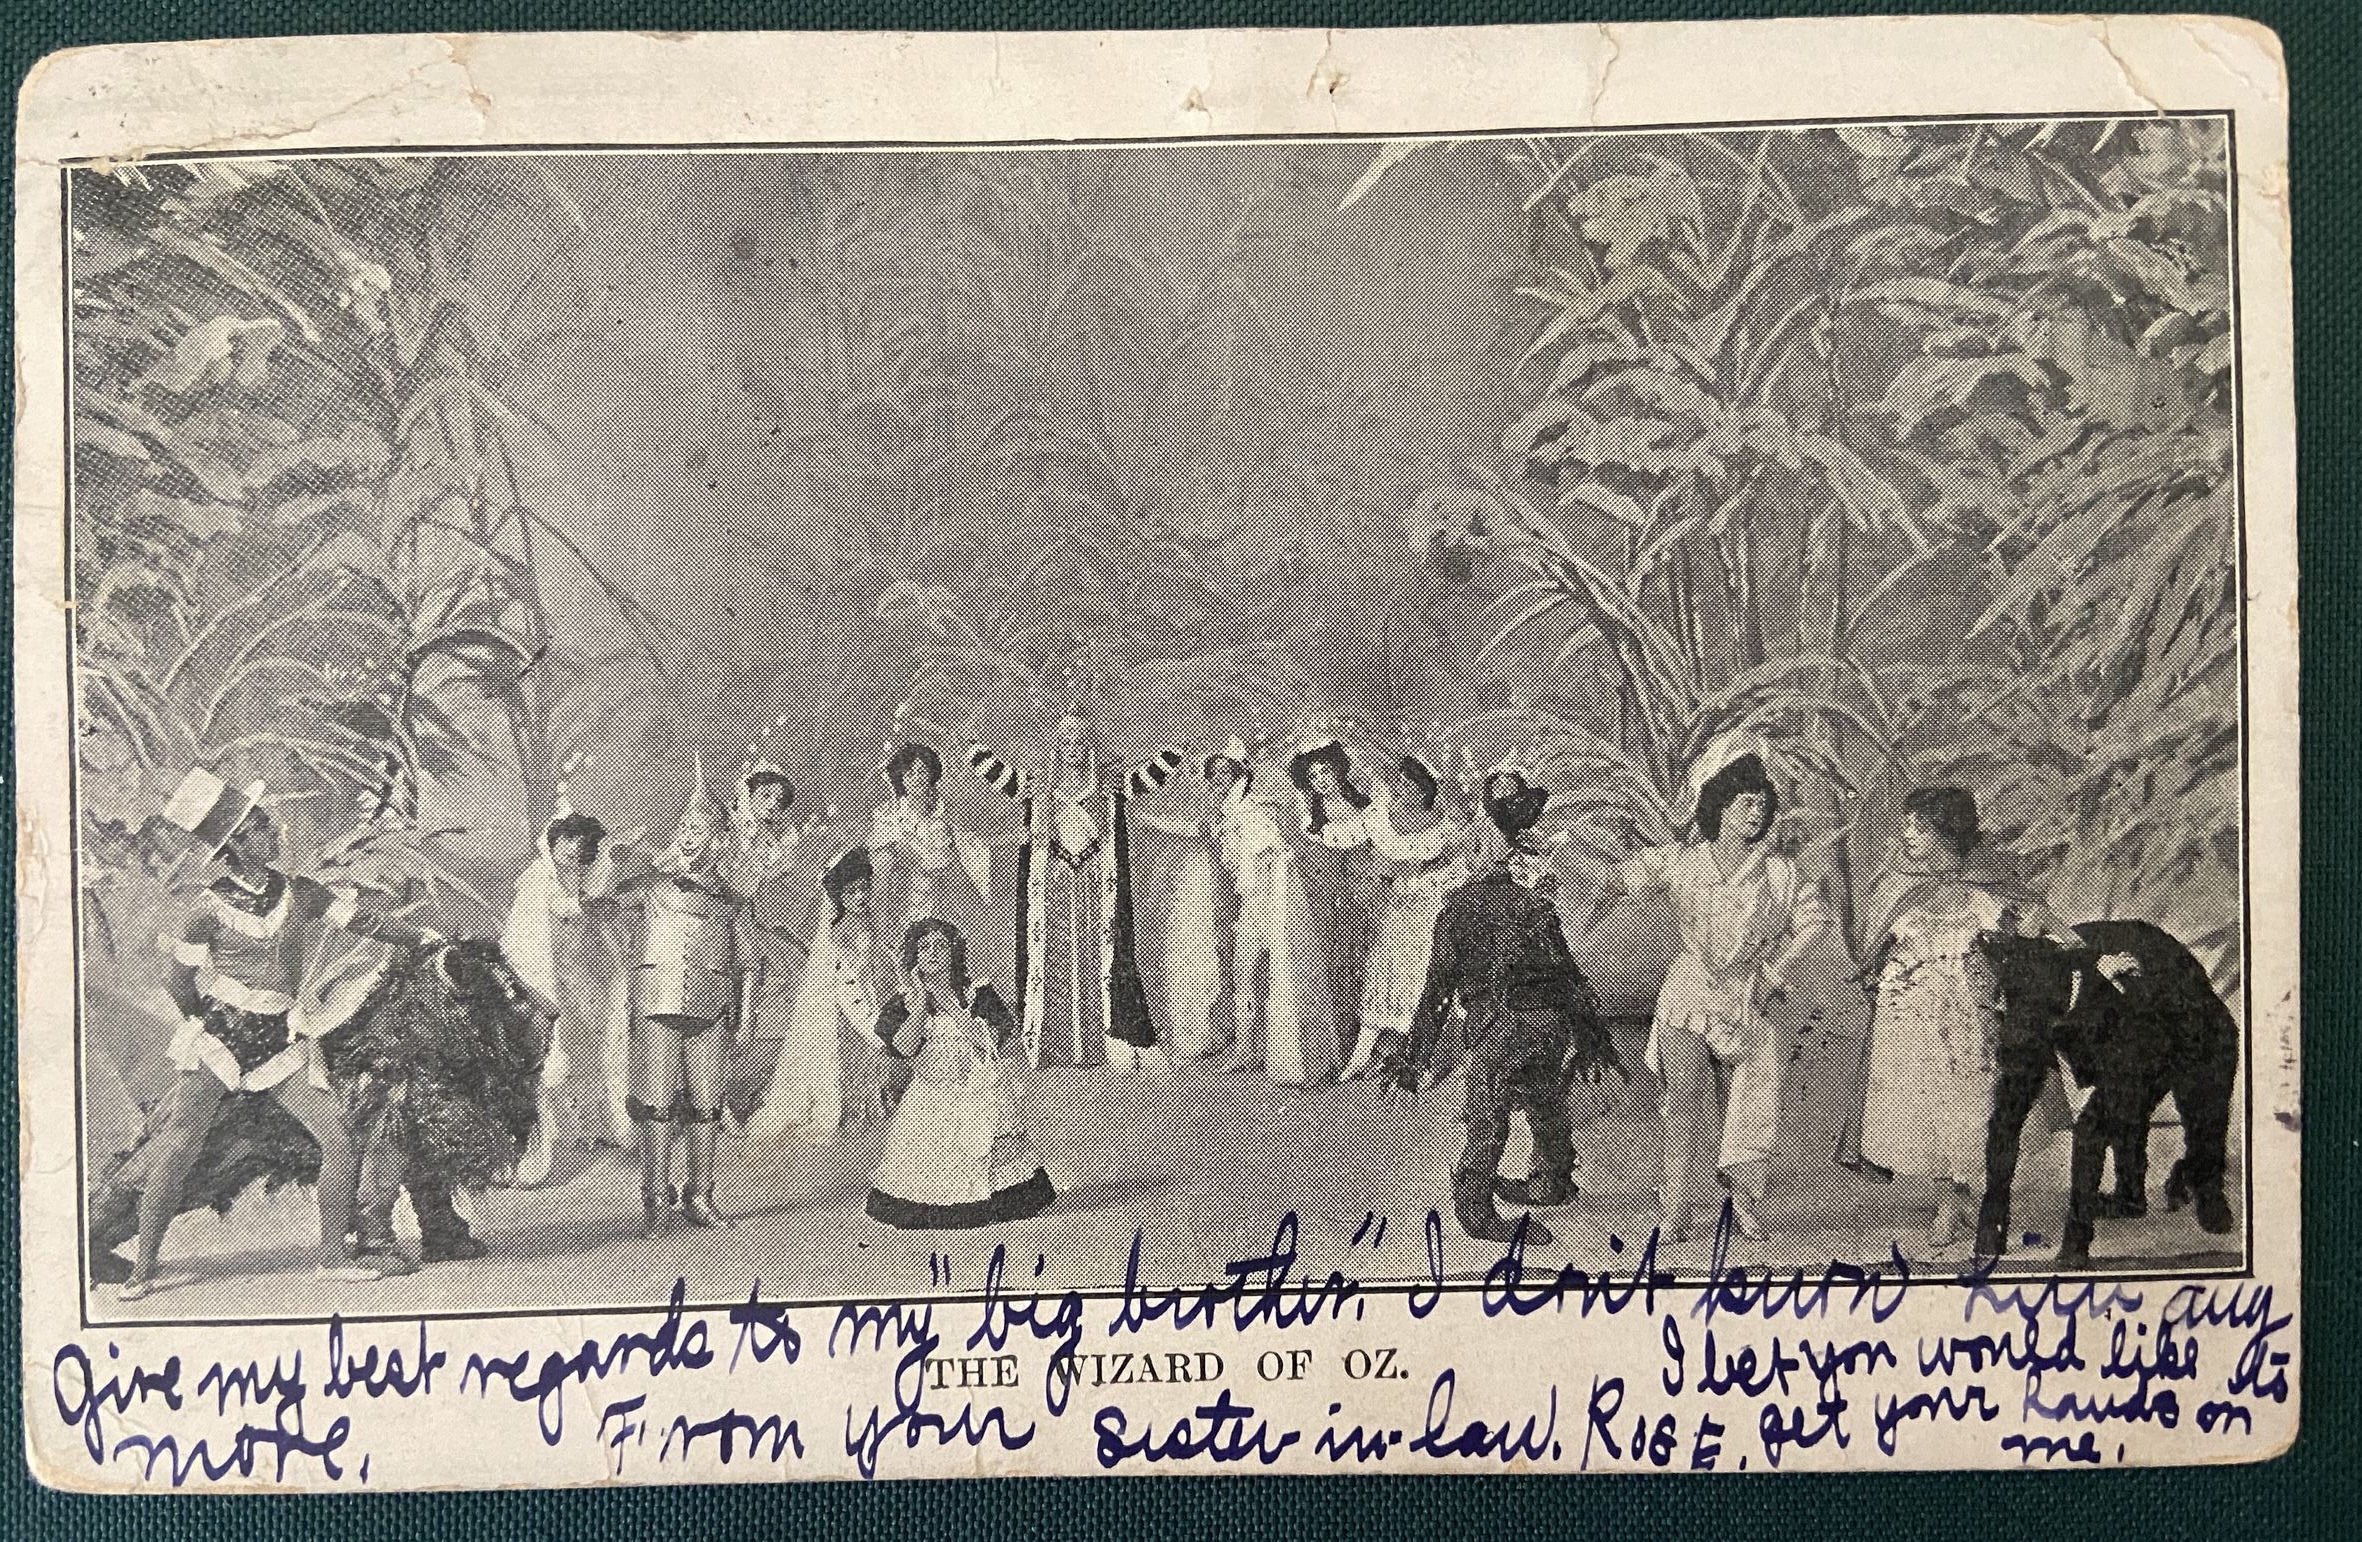 Give my best regards to my "big brother." I don't know him any
more.
THE WIZARD OF OZ.
From your Sister-in-law. ROSE.
I bet you would like to
get your hands on
me.